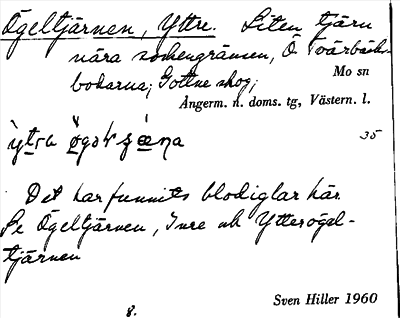 Ögeltjärnen, Yttre. Liten tjärn
nära sockengränsen, Ö Tvärbäcks-
bodarna; Gottne skog;
Mo sn
Ångerm. n. doms. tg, Västern. l.
35
Det har funnits blodiglar här.
Se Ögeltjärnen, Inre och Ytterögel-
tjärnen
8.
Sven Hiller 1960